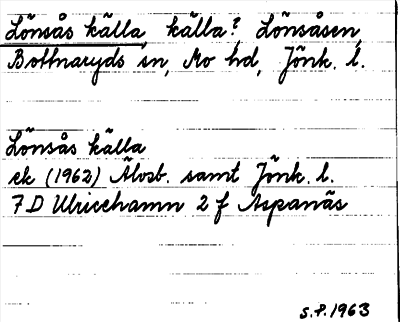 Lönsås källa, källa? Lönsåsen,
Bottnaryds sn, Mo hd, Jönk. l.
Lönsås källa
ek (1962) Älvsb. samt Jönk. l.
7 D Ulricehamn 2 f Aspanäs
S.P. 1963